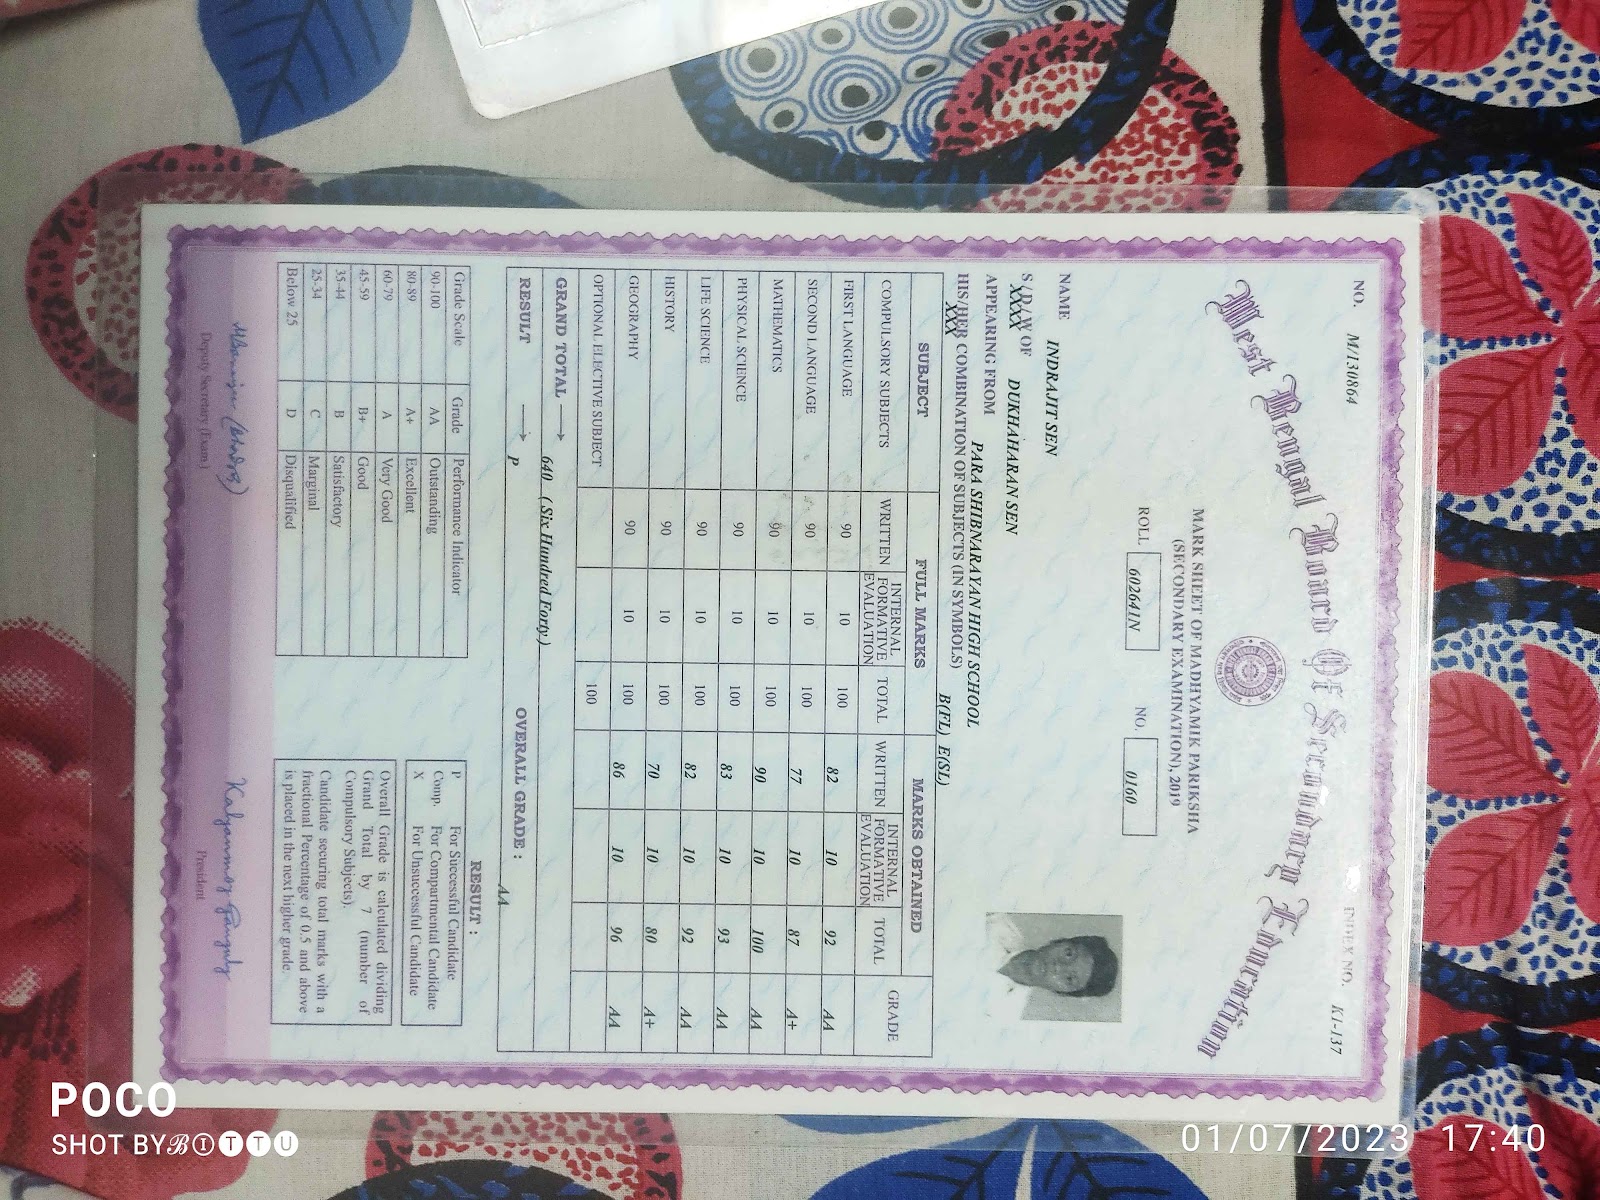 NO. M/130864 INDEX NO. K1-137
West Bengal Board Of Secondary Education
MARK SHEET OF MADHYAMIK PARIKSHA
(SECONDARY EXAMINATION), 2019
ROLL 602641N NO. 0160
NAME INDRAJIT SEN
S / D / W OF DUKHAHARAN SEN
XXXX
APPEARING FROM PARA SHIBNARAYAN HIGH SCHOOL
HIS/HER COMBINATION OF SUBJECTS (IN SYMBOLS) B(FL) E(SL)
XXX
SUBJECT FULL MARKS MARKS OBTAINED GRADE
COMPULSORY SUBJECTS WRITTEN INTERNAL FORMATIVE EVALUATION TOTAL WRITTEN INTERNAL FORMATIVE EVALUATION TOTAL
FIRST LANGUAGE 90 10 100 82 10 92 AA
SECOND LANGUAGE 90 10 100 77 10 87 A+
MATHEMATICS 90 10 100 90 10 100 AA
PHYSICAL SCIENCE 90 10 100 83 10 93 AA
LIFE SCIENCE 90 10 100 82 10 92 AA
HISTORY 90 10 100 70 10 80 A+
GEOGRAPHY 90 10 100 86 10 96 AA
OPTIONAL ELECTIVE SUBJECT 100
GRAND TOTAL → 640 (Six Hundred Forty)
RESULT → P OVERALL GRADE : AA
Grade Scale Grade Performance Indicator
90-100 AA Outstanding
80-89 A+ Excellent
60-79 A Very Good
45-59 B+ Good
35-44 B Satisfactory
25-34 C Marginal
Below 25 D Disqualified
RESULT :
P For Successful Candidate
Comp. For Compartmental Candidate
X For Unsuccessful Candidate
Overall Grade is calculated dividing
Grand Total by 7 (number of
Compulsory Subjects).
Candidate securing total marks with a
fractional Percentage of 0.5 and above
is placed in the next higher grade.
Kalyanmoy Ganguly
Deputy Secretary (Exam.) President
POCO
SHOT BYℬⒾⓉⓉⓊ
01/07/2023 17:40